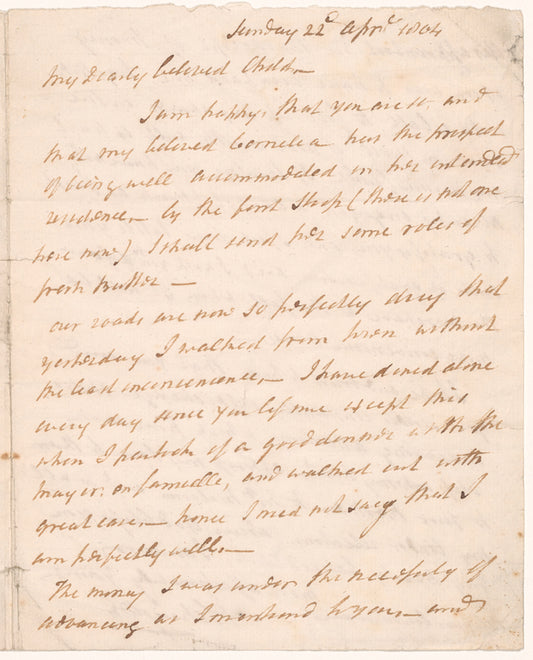 Sunday 22d Apri 1804
My Dearly beloved Child
I am happy, that you are so, and
that my beloved Cornelia has the prospect
of being well accommodated in her intended
residence – by the first Sloop (there is not one
here now) I shall send her some roles of
fresh Butter –
our roads are now so perfectly dry that
yesterday I walked from town without
the least inconvenience – I have dined alone
every day since you left me except this
when I partook of a good dinner with the
Mayor: en famille, and walked out with
great ease – hence I need not say that I
am perfectly well –
The money I was under the necessity of
advancing as I mentioned to you – and